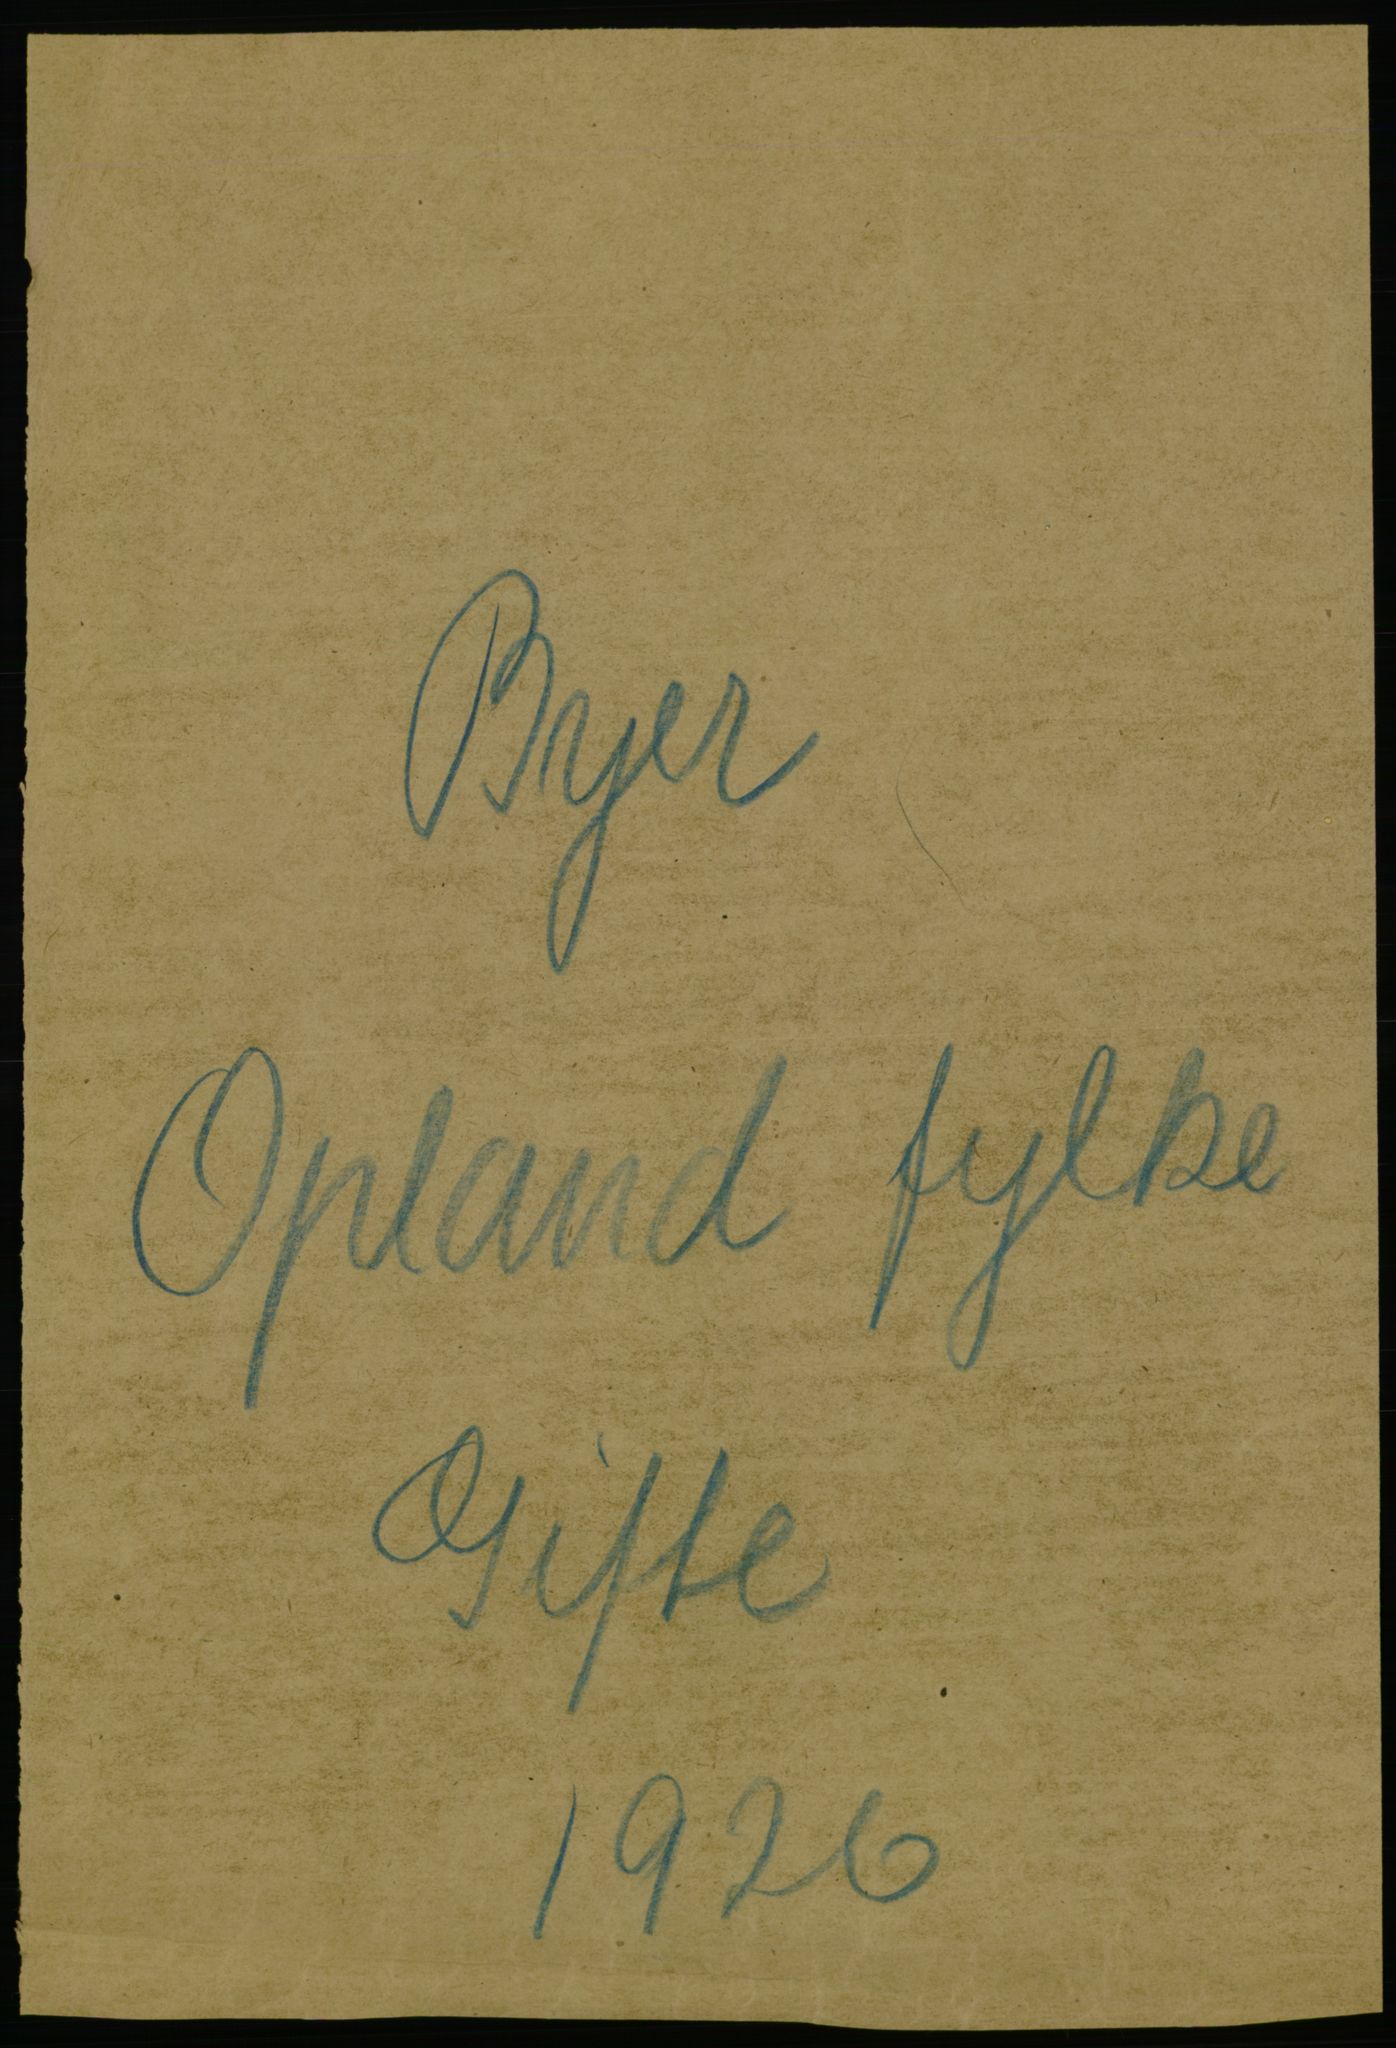 Byer
Opland fylke
Gifte
1926